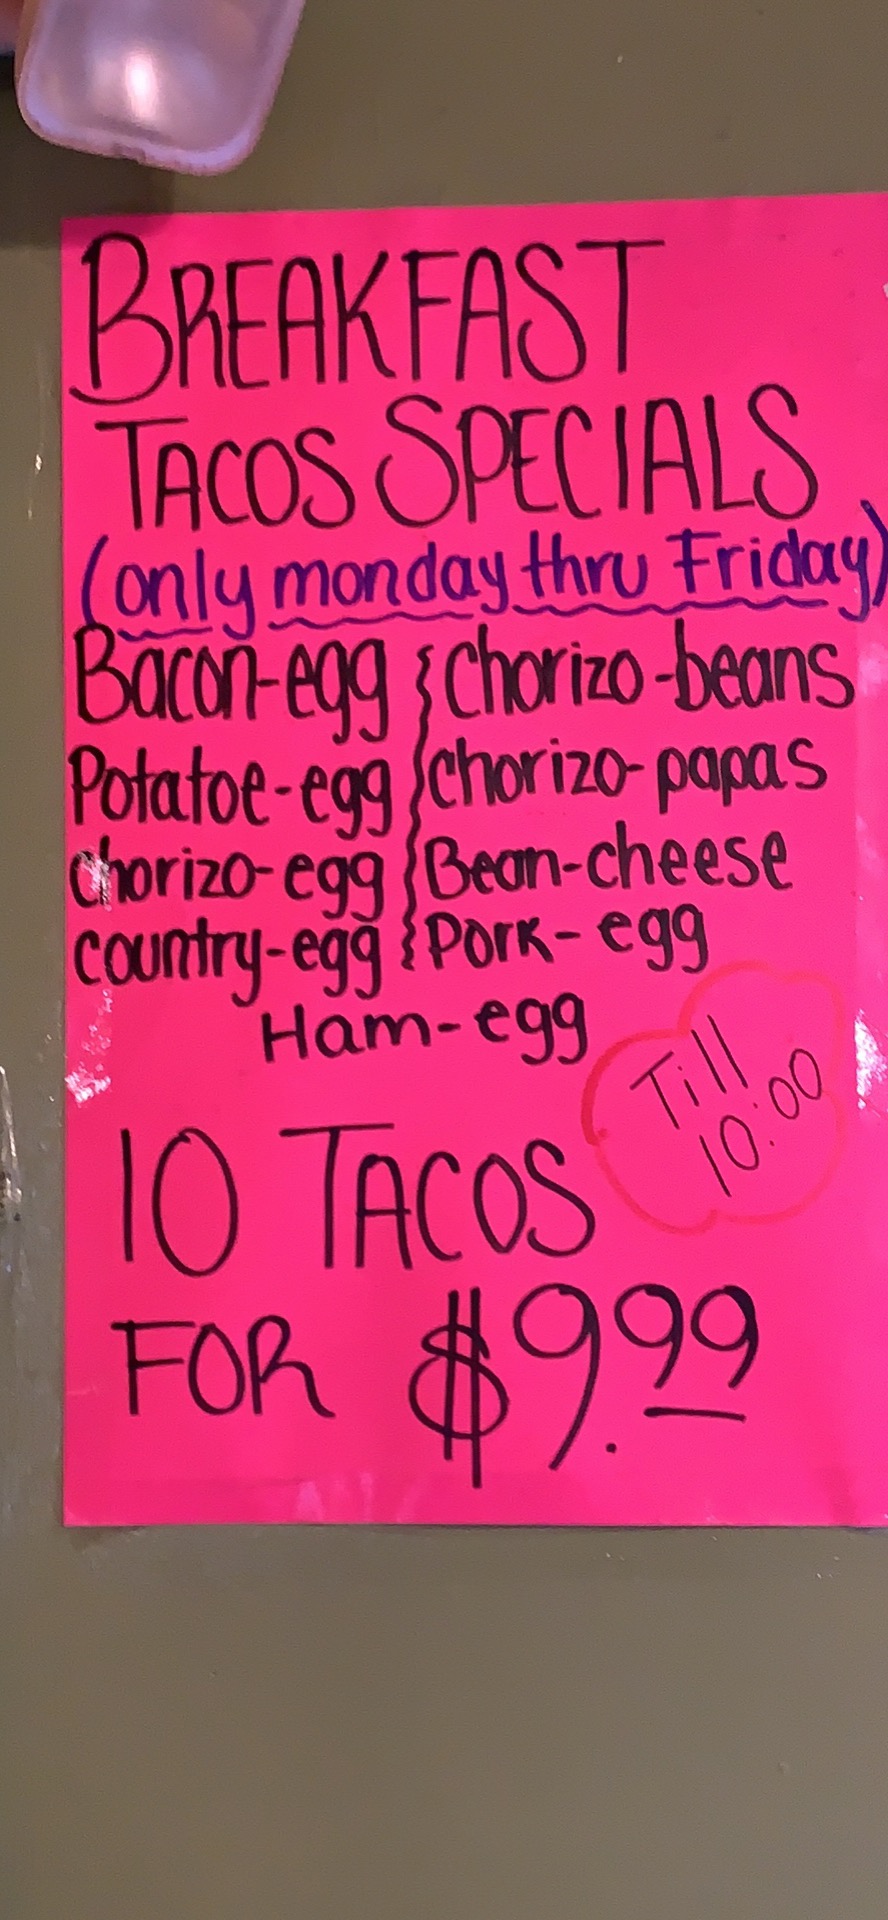 BREAKFAST
TACOS SPECIALS
(only monday thru Friday)
Bacon-egg
Potatoe-egg
chorizo-egg
country-egg
Chorizo-beans
Chorizo-papas
Bean-cheese
Pork-egg
Ham-egg
Till
10:00
10 TACOS
FOR $9.99